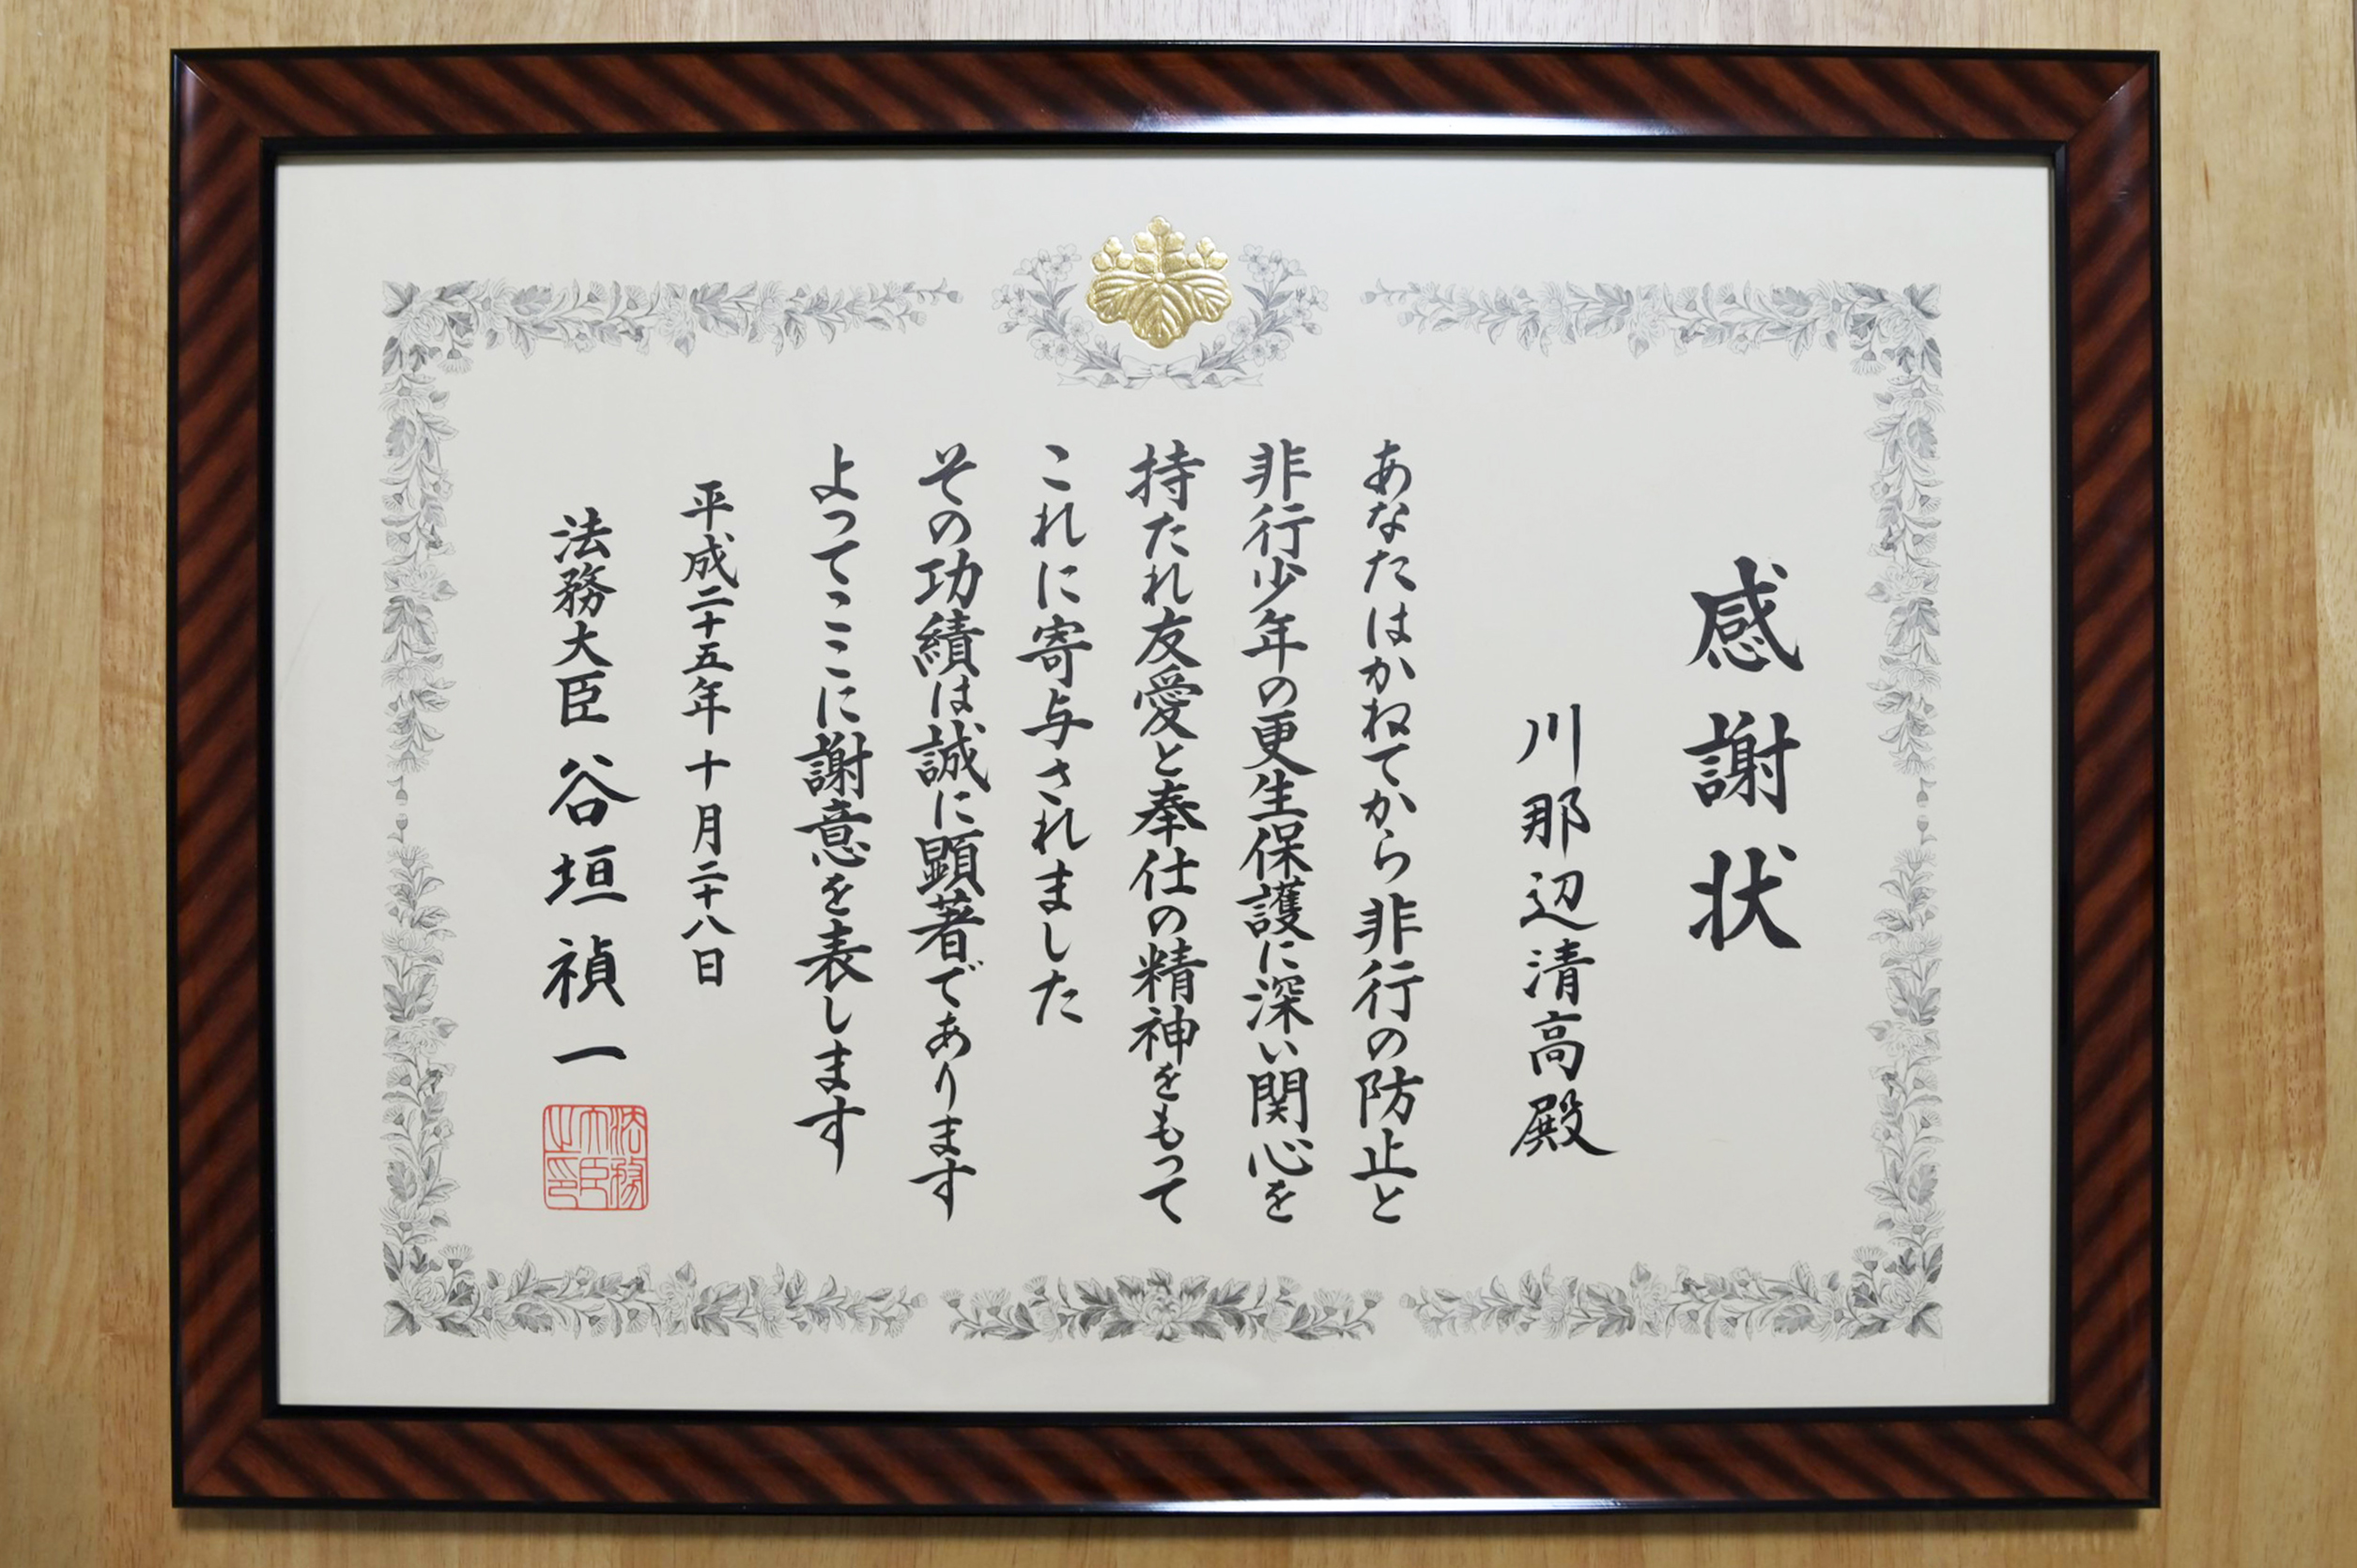 感謝状
川那辺清高殿
あなたはかねてから非行の防止と
非行少年の更生保護に深い関心を
持たれ友愛と奉仕の精神をもって
これに寄与されました
その功績は誠に顕著であります
よってここに謝意を表します
平成二十五年十月二十八日
法務大臣谷垣禎一
法務
大臣
之印